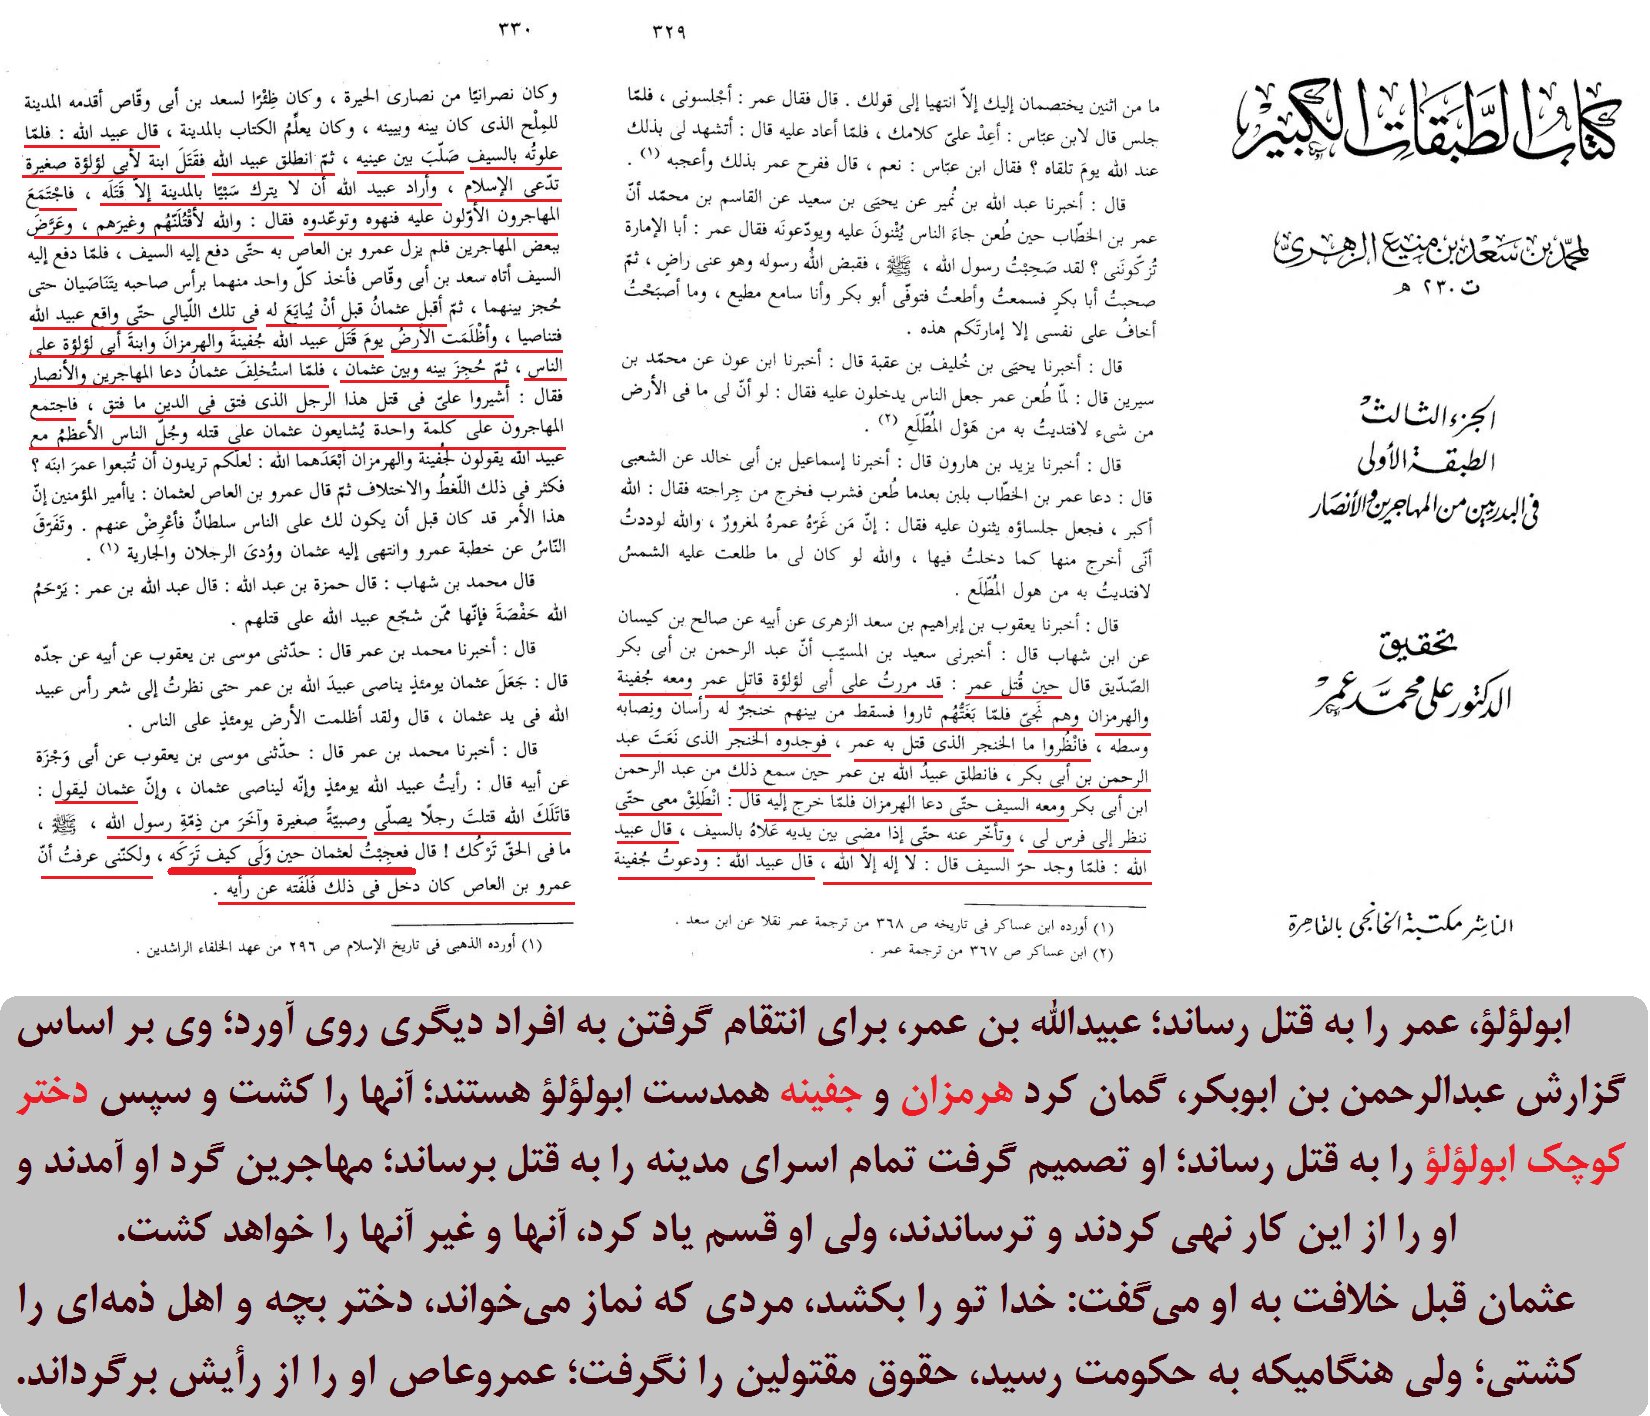 كتاب الطبقات الكبير
لمحمد بن سعد بن منيع الزهرى
ت ٢٣٠ هـ
الجزء الثالث
الطبقة الأولى
فى البدريين من المهاجرين والأنصار
تحقيق
الدكتور على محمد عمر
الناشر مكتبة الخانجى بالقاهرة
٣٢٩
ما من اثنين يختصمان إليك إلاّ انتهيا إلى قولك . قال فقال عمر : أجْلسونى ، فلمّا
جلس قال لابن عبّاس : أعِدْ علىّ كلامك ، فلمّا أعاد عليه قال : أتشهد لى بذلك
عند الله يومَ تلقاه ؟ فقال ابن عبّاس : نعم ، قال ففرح عمر بذلك وأعجبه (١) .
قال : أخبرنا عبد الله بن نُمير عن يحيَى بن سعيد عن القاسم بن محمّد أنّ
عمر بن الخطّاب حين طُعن جاءَ الناس يُثْنونَ عليه ويودّعونَه فقال عمر : أبا الإمارة
تُزكّونَنى ؟ لقد صَحِبْتُ رسول الله ، ﷺ ، فقبض الله رسوله وهو عنى راضٍ ، ثمّ
صحبتُ أبا بكرٍ فسمعتُ وأطعتُ فتوفّى أبو بكر وأنا سامع مطيع ، وما أصبَحْتُ
أخافُ على نفسى إلا إمارتَكم هذه .
قال : أخبرنا يحيَى بن خُليف بن عقبة قال : أخبرنا ابن عون عن محمّد بن
سيرين قال : لمّا طُعن عمر جعل الناس يدخلون عليه فقال : لو أنّ لى ما فى الأرض
من شىء لافتديتُ به من هَوْل المُطَّلَعِ (٢) .
قال : أخبرنا يزيد بن هارون قال : أخبرنا إسماعيل بن أبى خالد عن الشعبى
قال : دعا عمر بن الخطّاب بلبن بعدما طُعن فشرب فخرج من جِراحته فقال : الله
أكبر ، فجعل جلساؤه يثنون عليه فقال : إنّ مَن غَرّهُ عمرهُ لمغرورٌ ، والله لوددتُ
أنّى أخرج منها كما دخلتُ فيها ، والله لو كان لى ما طلعت عليه الشمسُ
لافتديتُ به من هول المُطّلَع .
قال : أخبرنا يعقوب بن إبراهيم بن سعد الزهرى عن أبيه عن صالح بن كيسان
عن ابن شهاب قال : أخبرنى سعيد بن المسيّب أنّ عبد الرحمن بن أبى بكر
الصّدّيق قال حين قُتل عمر : قد مررتُ على أبى لؤلؤة قاتلِ عمر ومعه جُفينة
والهرمزان وهم نَجىّ فلمّا بَغَتُّهُم ثاروا فسقط من بينهم خنجرٌ له رأسان ونِصابه
وسطه ، فانْظُروا ما الخنجر الذى قتل به عمر ، فوجدوه الخنجر الذى نَعَتَ عبد
الرحمن بن أبى بكر ، فانطلق عبيدُ الله بن عمر حين سمع ذلك من عبد الرحمن
ابن أبى بكر ومعه السيف حتّى دعا الهرمزان فلمّا خرج إليه قال : انْطَلِقْ معى حتّى
ننظر إلى فرس لى ، وتأخّر عنه حتّى إذا مضى بين يديه عَلاهُ بالسيف ، قال عبيد
الله : فلمّا وجد حرّ السيف قال : لا إله إلاّ الله ، قال عبيد الله : ودعوتُ جُفينة
(١) أورده ابن عساكر فى تاريخه ص ٣٦٨ من ترجمة عمر نقلا عن ابن سعد .
(٢) ابن عساكر ص ٣٦٧ من ترجمة عمر .
٣٣٠
وكان نصرانيّا من نصارى الحيرة ، وكان ظِئْرًا لسعد بن أبى وقّاص أقدمه المدينة
للمِلْح الذى كان بينه وبينه ، وكان يعلِّمُ الكتاب بالمدينة ، قال عبيد الله : فلمّا
علوتُه بالسيف صَلّبَ بين عينيه ، ثمّ انطلق عبيد الله فقَتَلَ ابنة لأبى لؤلؤة صغيرة
تدّعى الإسلام ، وأراد عبيد الله أن لا يترك سَبْيًا بالمدينة إلاّ قَتَلَه ، فاجْتَمَعَ
المهاجرون الأوّلون عليه فنهوه وتوعّدوه فقال : والله لأقْتُلَنّهُم وغيرَهم ، وعَرَّضَ
ببعض المهاجرين فلم يزل عمرو بن العاص به حتّى دفع إليه السيف ، فلمّا دفع إليه
السيف أتاه سعد بن أبى وقاص فأخذ كلّ واحد منهما برأس صاحبه يتَنَاصَيان حتى
حُجز بينهما ، ثمّ أقبل عثمانُ قبل أنْ يُبايَعَ له فى تلك اللّيالى حتّى واقع عبيد الله
فتناصيا ، وأظْلَمَت الأرضُ يومَ قَتَلَ عبيد الله جُفينةَ والهرمزانَ وابنةَ أبى لؤلؤة على
الناس ، ثمّ حُجِزَ بينه وبين عثمان ، فلمّا استُخلِفَ عثمانُ دعا المهاجرين والأنصار
فقال : أشيروا علىّ فى قتل هذا الرجل الذى فتق فى الدين ما فتق ، فاجتمع
المهاجرون على كلمة واحدة يُشايعون عثمان على قتله وجُلّ الناس الأعظمُ مع
عبيد الله يقولون لجُفينة والهرمزان أبْعَدَهما الله : لعلّكم تريدون أن تُتبعوا عمرَ ابنَه ؟
فكثر فى ذلك اللّغطُ والاختلاف ثمّ قال عمرو بن العاص لعثمان : ياأمير المؤمنين إنّ
هذا الأمر قد كان قبل أن يكون لك على الناس سلطانٌ فأعْرِضْ عنهم . وتَفَرّقَ
النّاسُ عن خطبة عمرو وانتهى إليه عثمان وودُىَ الرجلان والجارية (١) .
قال محمد بن شهاب : قال حمزة بن عبد الله : قال عبد الله بن عمر : يَرْحَمُ
الله حَفْصَةَ فإنّها ممّن شجّع عبيد الله على قتلهم .
قال : أخبرنا محمد بن عمر قال : حدّثنى موسى بن يعقوب عن أبيه عن جدّه
قال : جَعَلَ عثمان يومئذٍ يناصى عبيدَ الله بن عمر حتى نظرتُ إلى شعر رأس عبيد
الله فى يد عثمان ، قال ولقد أظلمت الأرض يومئذٍ على الناس .
قال : أخبرنا محمد بن عمر قال : حدّثنى موسى بن يعقوب عن أبى وَجْزَة
عن أبيه قال : رأيتُ عبيد الله يومئذٍ وإنّه ليناصى عثمان ، وإنّ عثمان ليقول :
قاتَلَكَ الله قتلتَ رجلًا يصلّى وصبيّةً صغيرة وآخَرَ من ذِمّةِ رسول الله ، ﷺ ،
ما فى الحقّ تَرْكُك ! قال فعجِبْتُ لعثمان حين وَلَى كيف تَرَكَه ، ولكنّنى عرفتُ أنّ
عمرو بن العاص كان دخل فى ذلك فَلَفَته عن رأيه .
(١) أورده الذهبى فى تاريخ الإسلام ص ٢٩٦ من عهد الخلفاء الراشدين .
ابولؤلؤ، عمر را به قتل رساند؛ عبیدالله بن عمر، برای انتقام گرفتن به افراد دیگری روی آورد؛ وی بر اساس
گزارش عبدالرحمن بن ابوبکر، گمان کرد هرمزان و جفینه همدست ابولؤلؤ هستند؛ آنها را کشت و سپس دختر
کوچک ابولؤلؤ را به قتل رساند؛ او تصمیم گرفت تمام اسرای مدینه را به قتل برساند؛ مهاجرین گرد او آمدند و
او را از این کار نهی کردند و ترساندند، ولی او قسم یاد کرد، آنها و غیر آنها را خواهد کشت.
عثمان قبل خلافت به او می‌گفت: خدا تو را بکشد، مردی که نماز می‌خواند، دختر بچه و اهل ذمه‌ای را
کشتی؛ ولی هنگامیکه به حکومت رسید، حقوق مقتولین را نگرفت؛ عمروعاص او را از رأیش برگرداند.